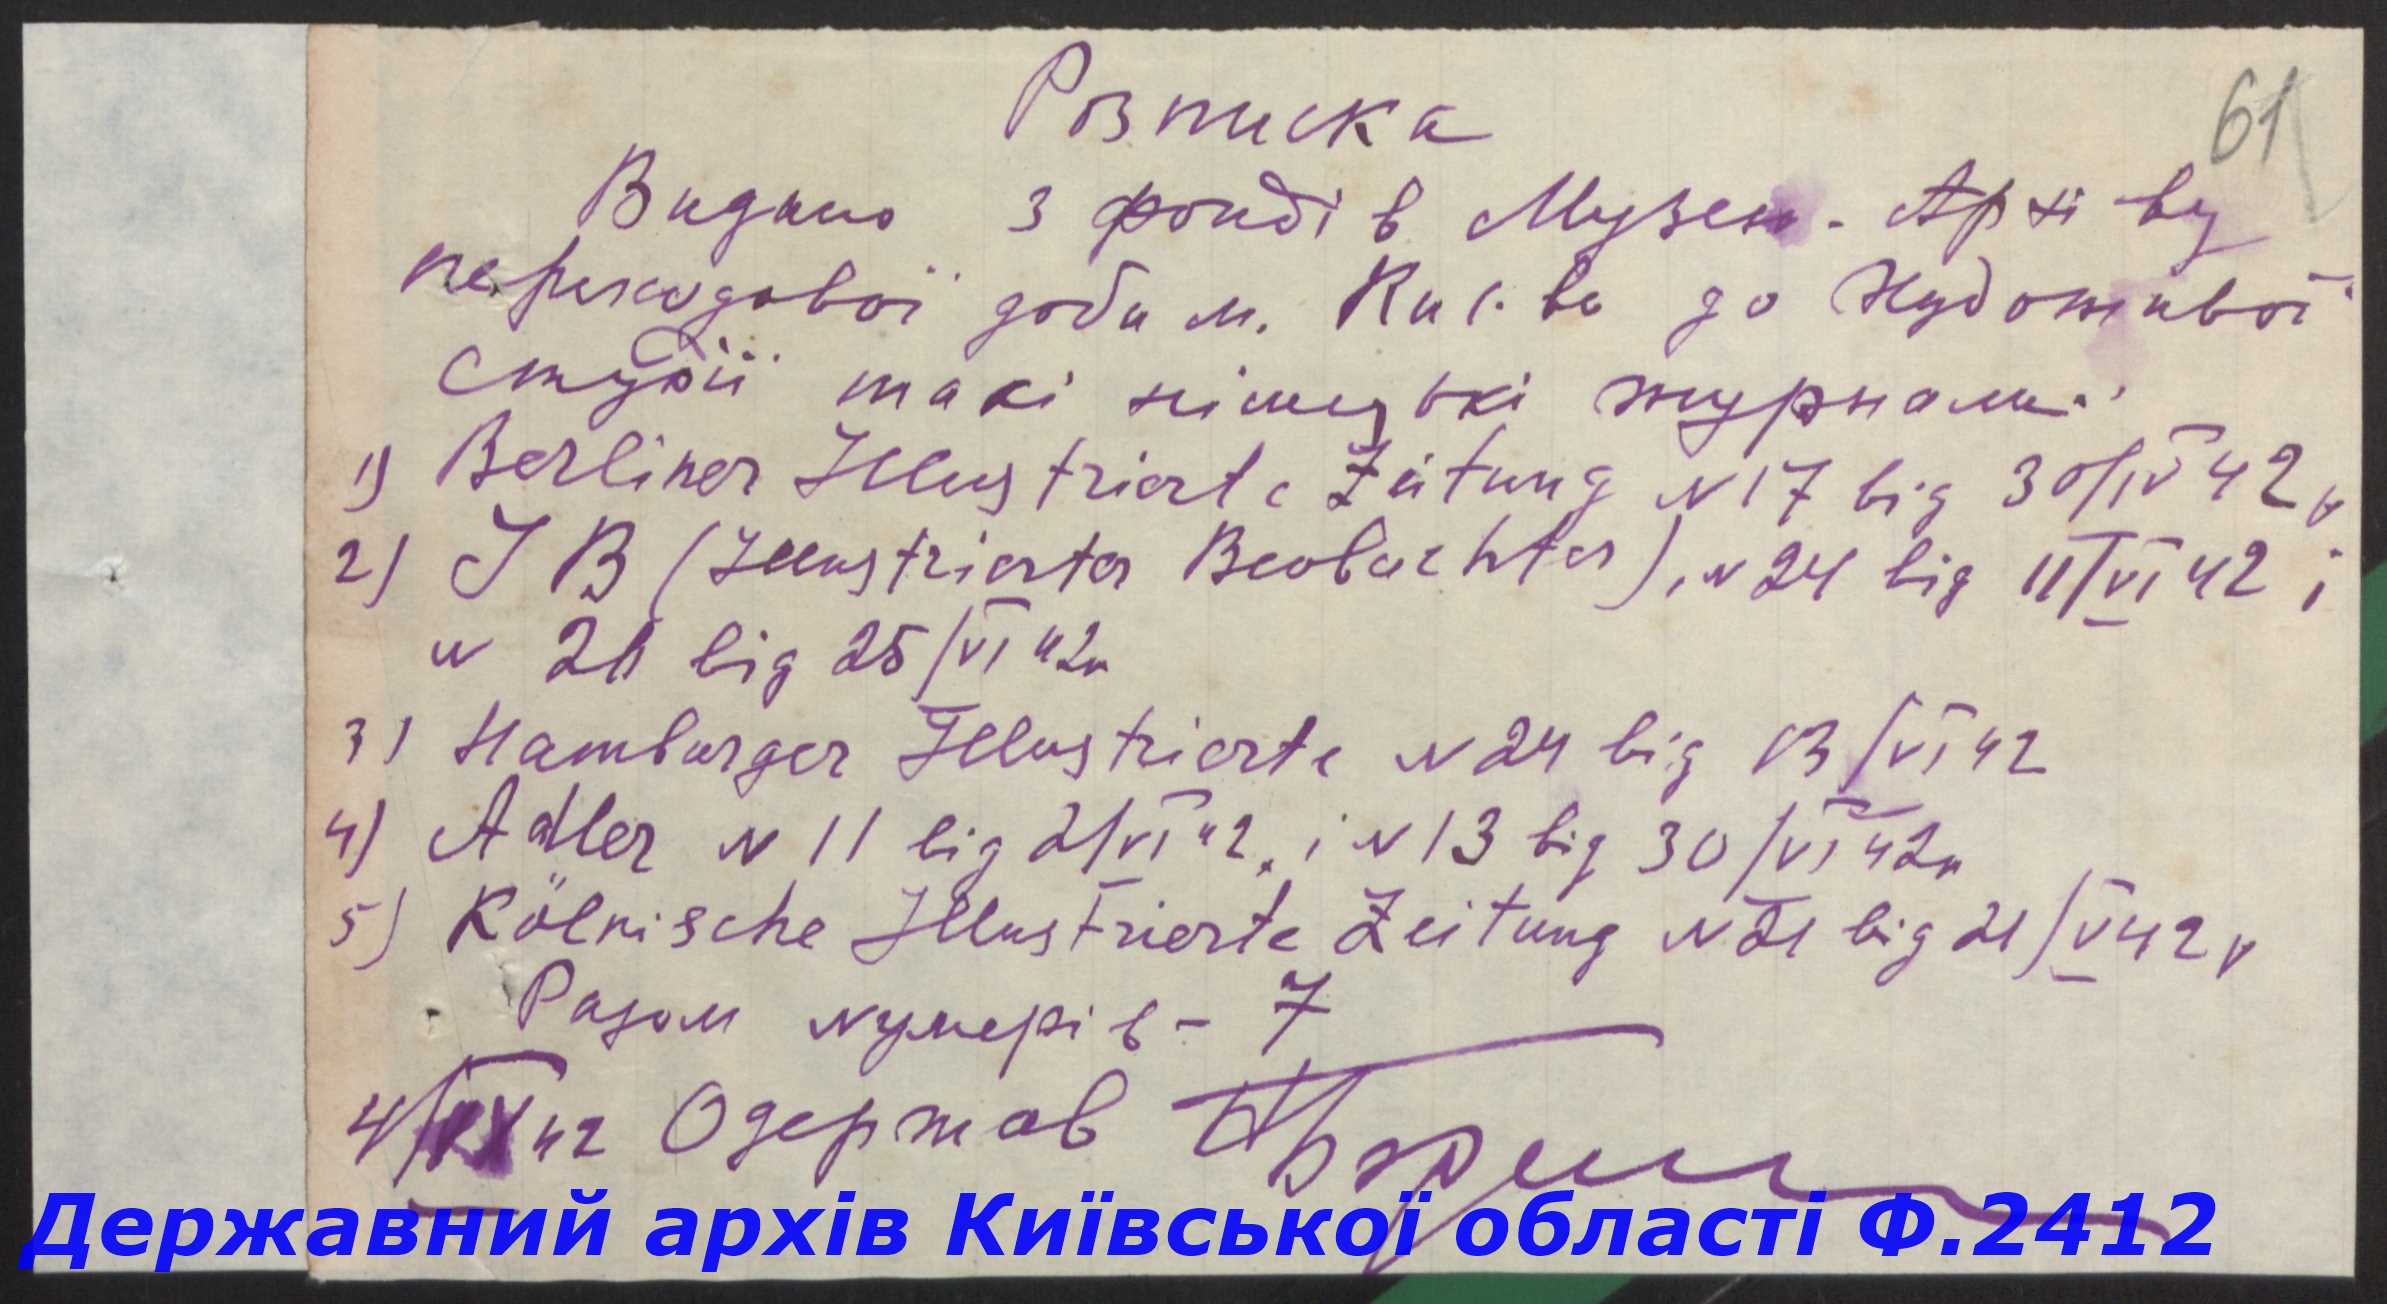 61
Розписка
Видано з фондів Музею-Архіву
переходової доби м. Києва до Художньої
студії такі німецькі журнали:
1) Berliner Illustrierte Zeitung N 17 від 30/IV 42 р
2) J B (Illustrierter Beobachter), N 24 від 11/VI 42 і
N 26 від 25/VI 42 р
3) Hamburger Illustrierte N 24 від 13/VI 42
4) Adler N 11 від 2/VI 42. і N 13 від 30/VI 42 р
5) Kölnische Illustrierte Zeitung N 21 від 21/V 42 р
Разом нумерів - 7
4/IX 42 Одержав
Державний архів Київської області Ф.2412